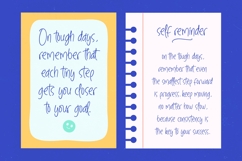 On tough days,
remember that
each tiny step
gets you closer
to your goal.
self reminder
on the tough days,
remember that even
the smallest step forward
is progress. keep moving,
no matter how slow,
because consistency is
the key to your success.